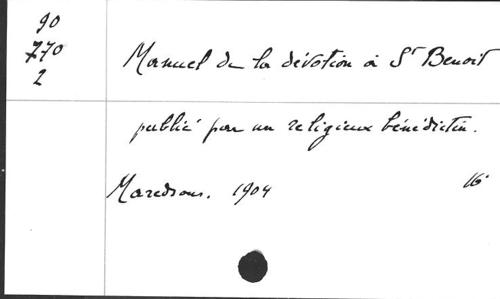 90
770
2
Manuel de la dévotion à St Benoit
publié par un religieux bénédictin.
Maredsous. 1904 16°